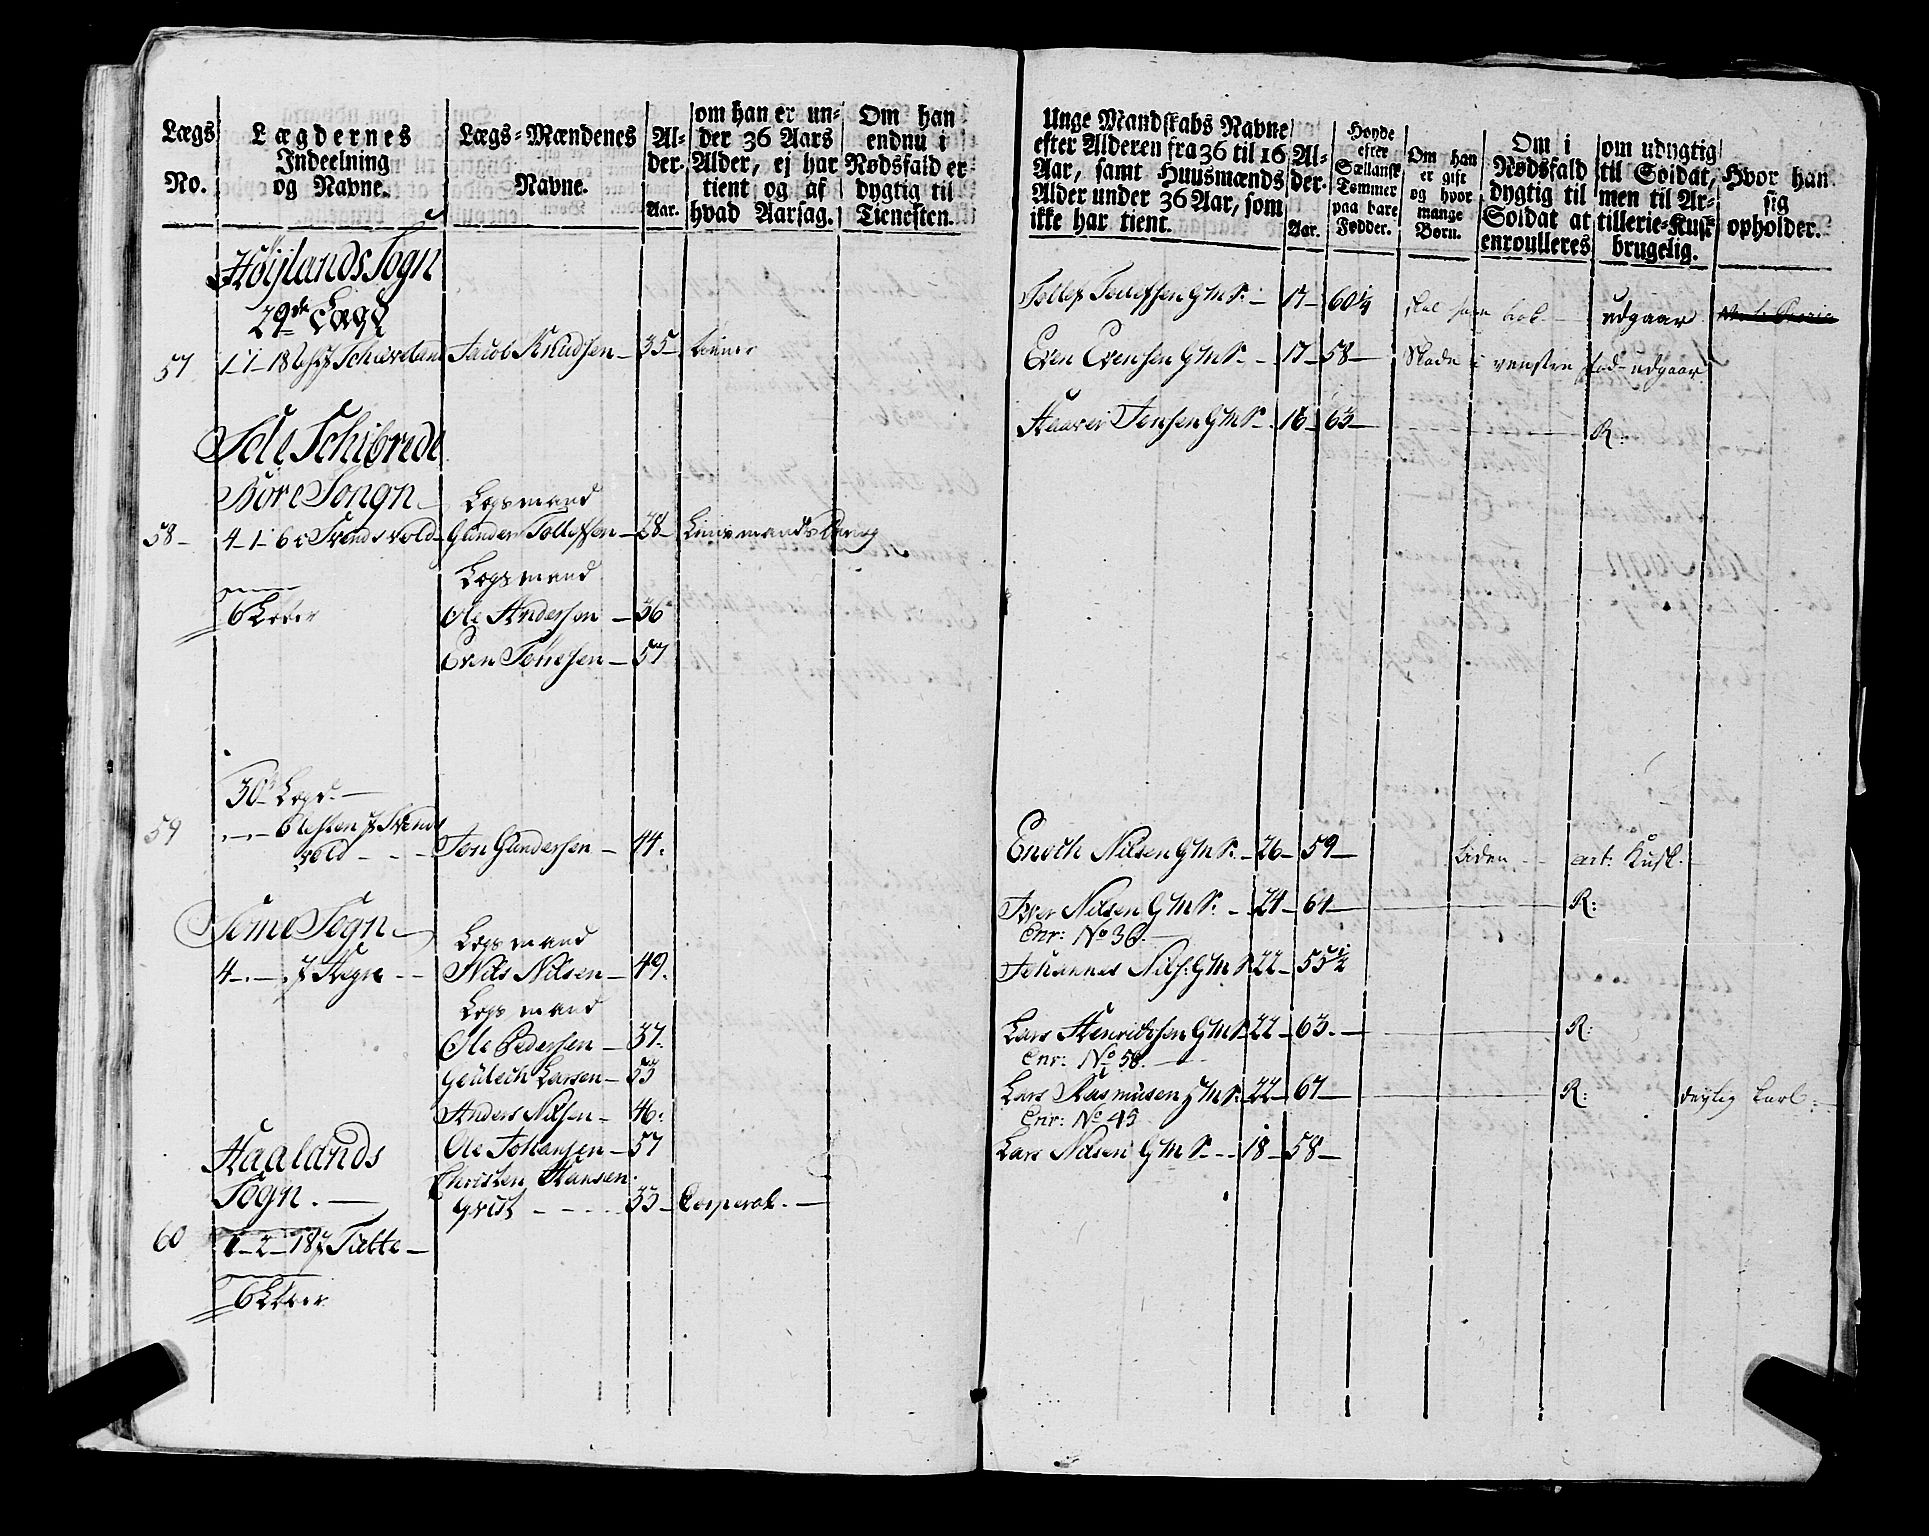 Lægs No.
Lægdernes Indeelning og Navne.
Lægs-Mændenes Navne.
Alder. Aar.
om han er under 36 Aars Alder, ej har tient og af hvad Aarsag.
Om han endnu i Nødsfald er dygtig til Tienesten.
Høylands Sogn
29de Lægd
57 1 - 1 - 18 Schiæveland Jacob Knudsen - 35 -
Schibrede
Bore Songn Lægsmand
58 - 4 - 1 - 6 Svendsvold - Gunder Tollefsen - 28 - Linsmands
Lægsmand
6 Ole Andersen - 36
Even Tønesen - 57
30 Lægd. -
59 Svends
vold - - - Jon Gundersen - 44.
Sogn - Lægsmand
4 - - - Nils Nilsen - 49.
Lægsmand
Ole Pedersen - 37.
Larsen -
Anders Nilsen - 46.
Haalands Ole Johansen - 57
Sogn. - Christen Hansen
Qvist - - - - 33 - Corperal. -
60 1 - 2 - 18 Tiætte -
6
Unge Mandskabs Navne efter Alderen fra 36 til 16 Aar, samt Huusmænds Alder under 36 Aar, som ikke har tient.
Alder. Aar.
Høyde efter Sællansk Tømmer paa bare Fødder.
Om han er gift og hvor mange Børn.
Om i Nødsfald dygtig til Soldat at enroulleres
om udygtig til Soldat, men til Artillerie-Kusk brugelig.
Hvor han sig opholder.
Tollef Tollefsen G M S. - 17 - 60 1/4 udgaar
Even Evensen G M S. - 17 - 58 - Skade i venstre fod - udgaar
Jensen G M S. - 16 - 63 - R.
Enoch Nilsen G M S. - 26 - 59 - liden - - art: Kusk. -
Iver Nilsen G M S. - 24 - 61 - R:
Enr: No 36. -
Johannes Nils: G M S 22 - 55 1/2
Lars Henrichsen G M S 22 - 63. - R:
Enr: No 58. -
Lars Rasmusen G M S. - 22 - 67 - R: dygtig Karl.
Enr: No 45
Lars Nilsen G M S. - - 18 - 58 -